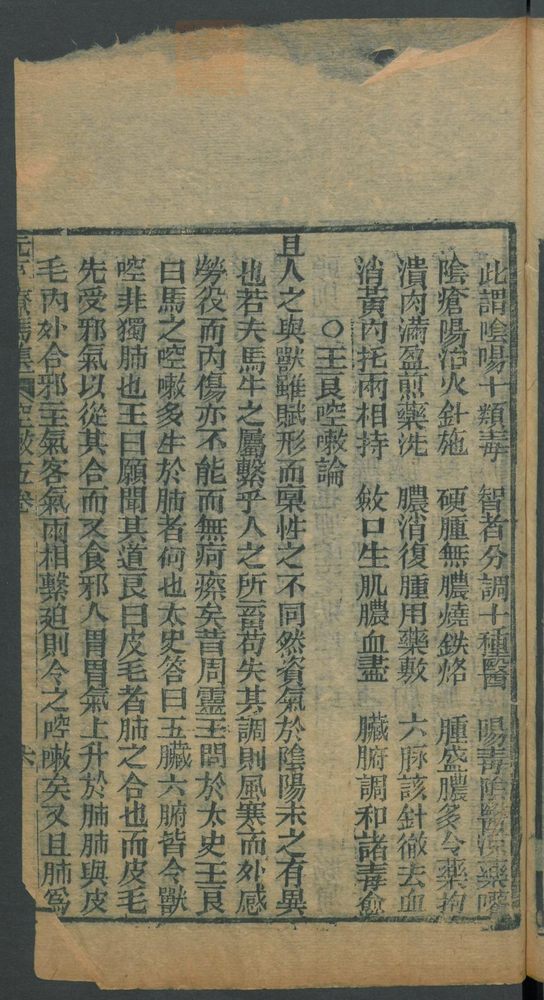 此謂陰陽十類毒　智者分調十種醫　陽毒陰瘡涼藥噙
陰瘡陽治火針施　硬腫無膿燒鉄烙　腫盛膿多令藥拘
潰肉滿盈煎藥洗　膿消復腫用藥敷　六脉該針徹去血
消黃內托兩相持　斂口生肌膿血盡　臟腑調和諸毒愈
○王良啌嗽論
且人之與獸雖賦形而稟性之不同然資氣於陰陽未之有異
也若夫馬牛之屬繫乎人之所畱苟失其調則風寒而外感
勞役而內傷亦不能而無疴瘵矣昔周靈王問於太史王良
曰馬之啌嗽多生於肺者何也太史答曰五臟六腑皆令獸
啌非獨肺也王曰願聞其道良曰皮毛者肺之合也而皮毛
先受邪氣以從其合而又食邪入胃胃氣上升於肺肺與皮
毛內外合邪主氣客氣兩相繫迫則令之啌嗽矣又且肺爲
元亨療馬集　啌嗽五卷　六